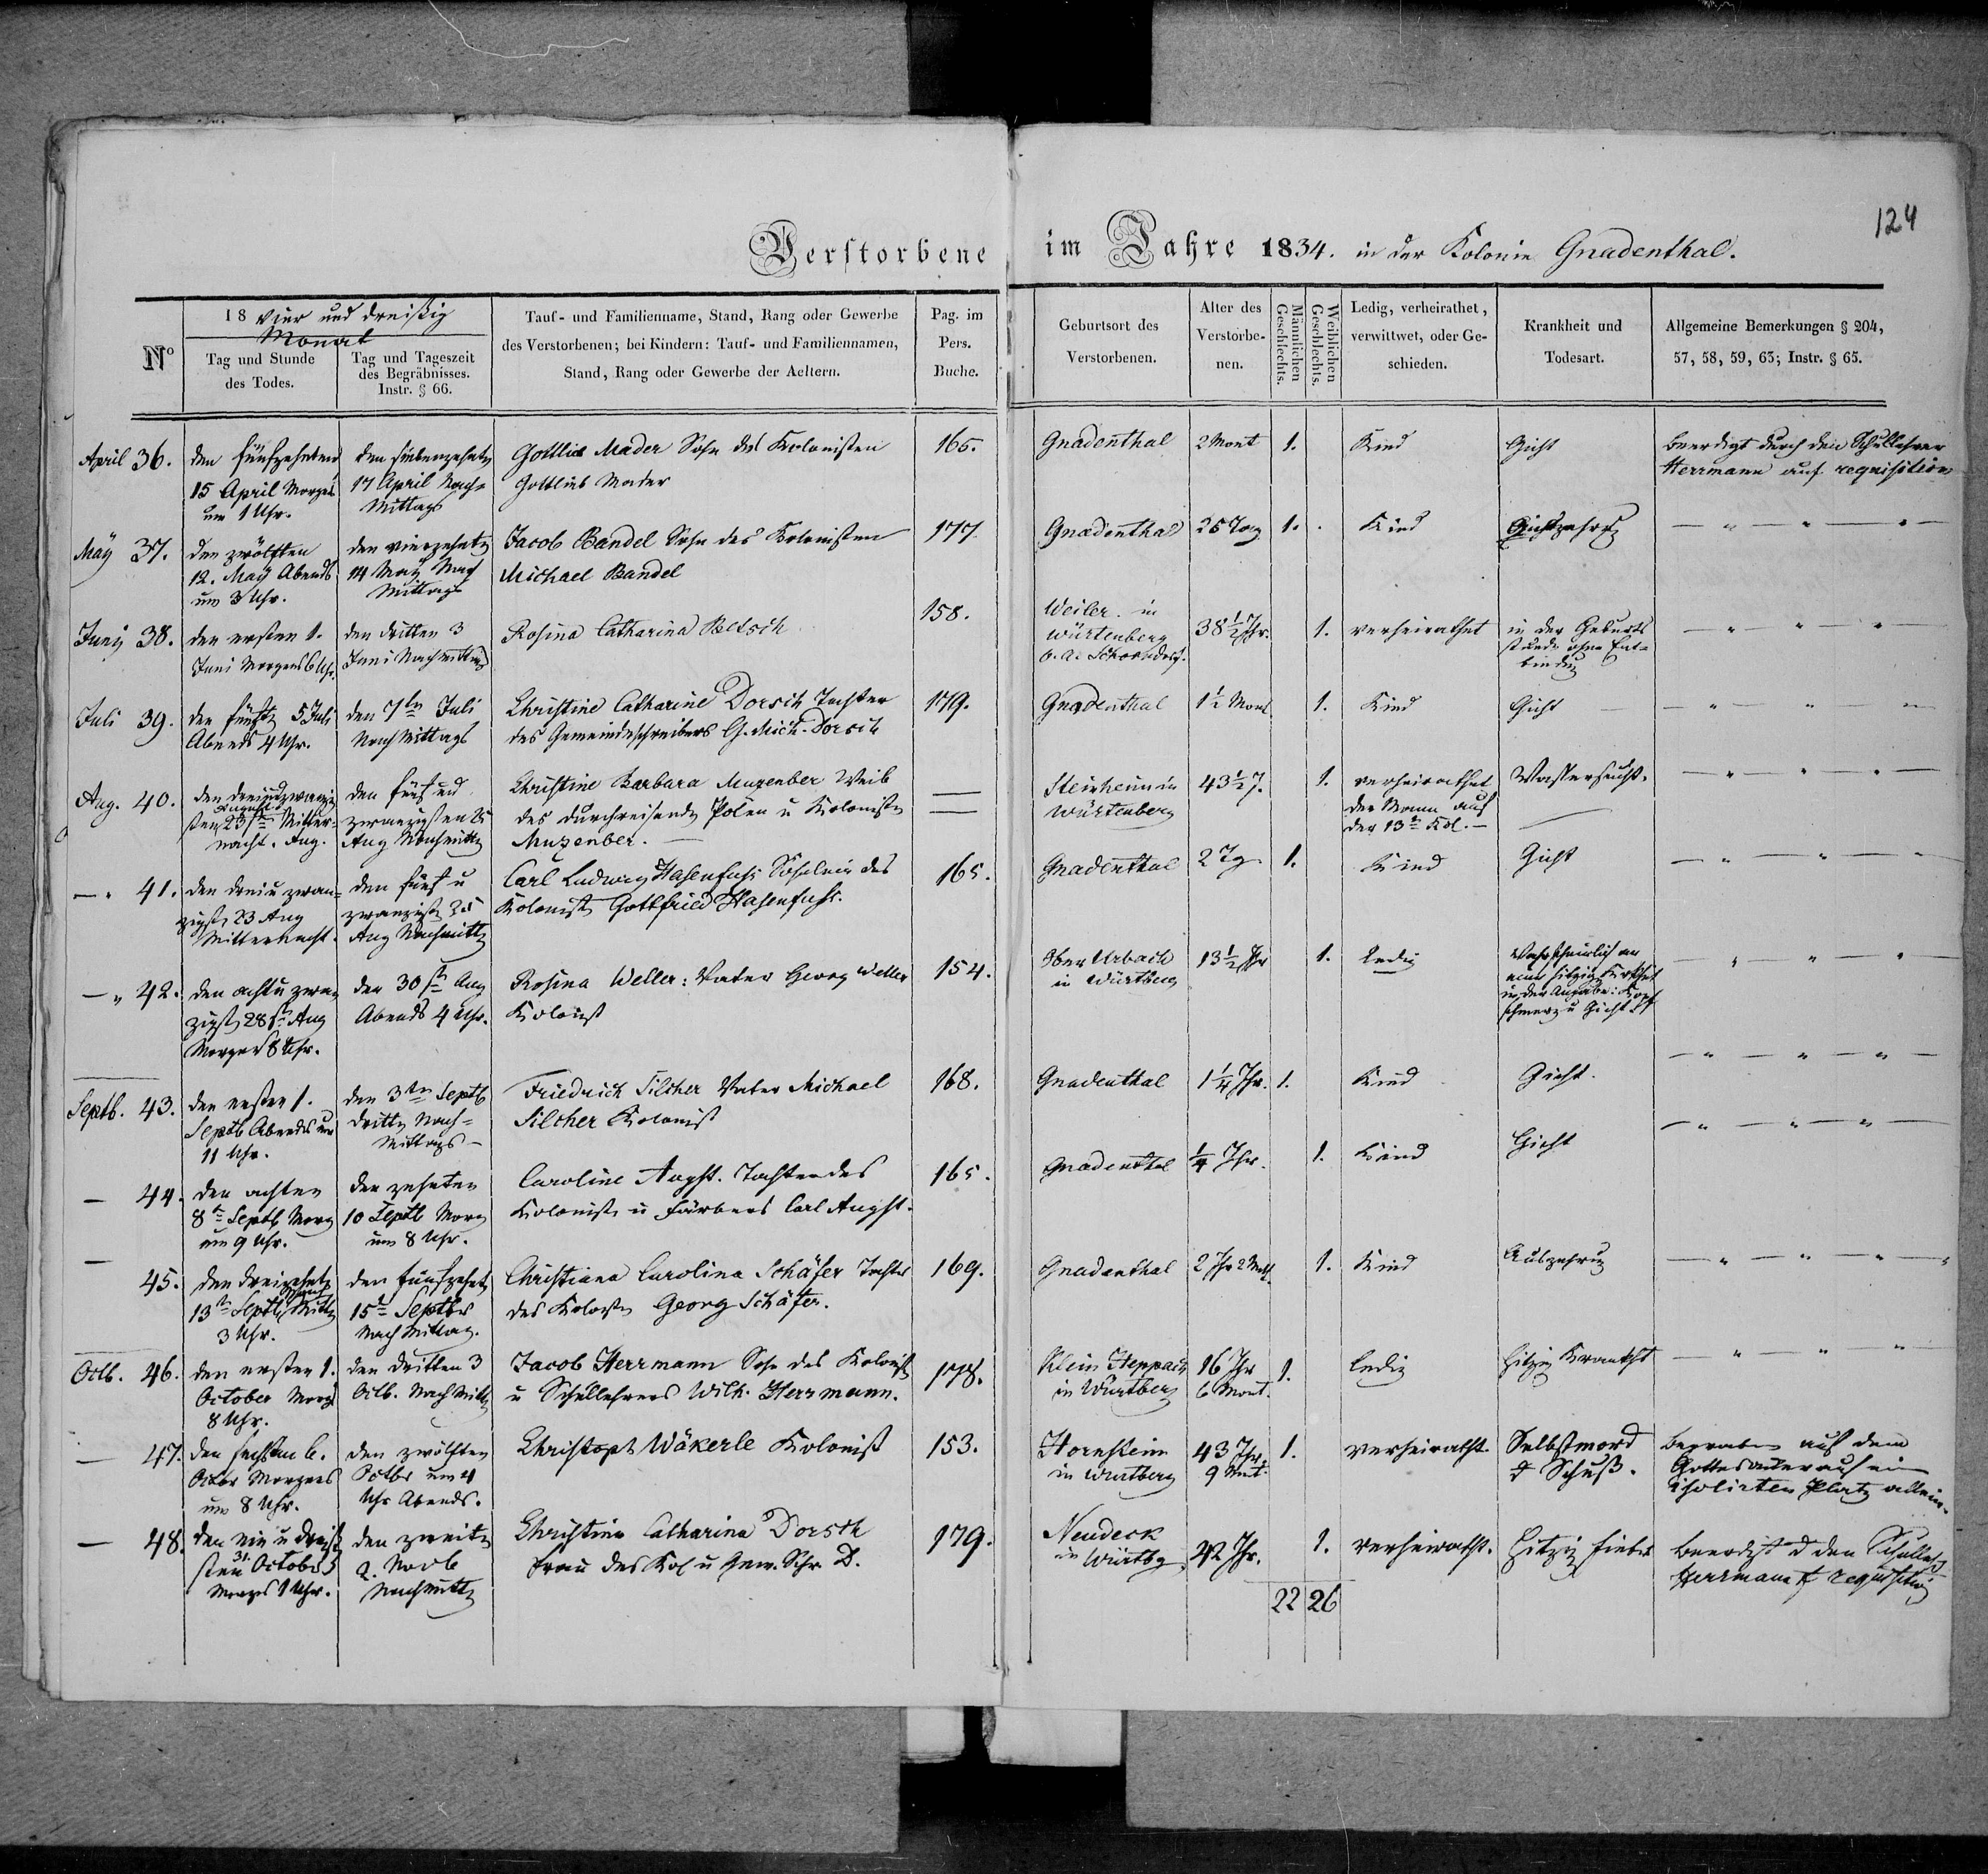 124
Verstorbene im Jahre 1834. in der Kolonie Gnadenthal.
No
18 vier und dreißig
Monat
Tag und Stunde
des Todes.
Tag und Tageszeit
des Begräbnisses.
Instr. § 66.
Tauf- und Familienname, Stand, Rang oder Gewerbe
des Verstorbenen; bei Kindern: Tauf- und Familiennamen,
Stand, Rang oder Gewerbe der Aeltern.
Pag. im
Pers.
Buche.
Geburtsort des
Verstorbenen.
Alter des
Verstorbe-
nen.
Männlichen
Geschlechts.
Weiblichen
Geschlechts.
Ledig, verheirathet,
verwittwet, oder Ge-
schieden.
Krankheit und
Todesart.
Allgemeine Bemerkungen § 204,
57, 58, 59, 63; Instr. § 65.
April 36.
den fünfzehnten
15 April Morgens
um 1 Uhr.
den siebenzehnten
17 April Nach=
Mittags
Gottlieb Mader Sohn des Kolonisten
Gottlieb Mader
165.
Gnadenthal
2 Monat
1.
Kind
Gicht
beerdigt durch den Schullehrer
Herrmann auf requisition
May 37.
den zwölften
12. May Abends
um 3 Uhr.
den vierzehnten
14 May Nach
Mittags
Jacob Bandel Sohn des Kolonisten
Michael Bandel
177
Gnadenthal
25 Tag
1.
Kind
— " " " —
Juny 38.
den ersten 1.
Juni Morgens 6 Uhr.
den dritten 3
Juni Nachmittag
Rosina Catharina Betsch
158.
Weiler in
Würtenberg
o. a. Schorndorf.
38 1/2 Jhr.
1.
verheirathet
in der Geburts
stunde ohne Ent=
bindung
— " — " — " —
Juli 39.
den fünften 5 Juli
Abends 4 Uhr.
den 7ten Juli
Nach Mittags
Christine Catharine Dorsch Tochter
des Gemeindeschreibers G. Mich. Dorsch
179.
Gnadenthal
1 1/2 Mont
1.
Kind
Gicht —
— " — " — "
Aug. 40.
den dreiundzwanzig
August
sten 23ten Mitter=
nacht. Aug.
den fünf und
zwanzigsten 25
Aug Nachmittag
Christine Barbara Muzenber Weib
des durchreisenden Polen u Kolonisten
Muzenber. —
Steinheim in
Würtenberg
43 1/2 J.
1.
verheirathet
der Mann auf
der 13ten Kol. —
Wassersucht.
— " — " — " —
— " 41.
den drei u zwan=
zigsten 23 Aug
Mitternacht.
den fünf u
zwanzigsten 25
Aug Nachmittag
Carl Ludwig Hasenfuss Söhnlein des
Kolonisten Gottfried Hasenfuss.
165.
Gnadenthal
2 Tg.
1.
Kind
Gicht
— " — " — " —
— " 42.
den acht u zwan
zigsten 28ten Aug
Morgens 8 Uhr.
den 30ten Aug
Abends 4 Uhr.
Rosina Weller: Vater Georg Weller
Kolonist
154.
Ober Urbach
in Würtberg
13 1/2 Jhr
1.
Ledig
Wahrscheinlich an
in der Angabe: Kopf
schmerz u Gicht
— " — " — " —
Septb. 43.
den ersten 1.
Septb Abends um
11 Uhr.
den 3ten Septb
dritten Nach=
Mittags —
Friedrich Silcher Vater Michael
Silcher Kolonist
168.
Gnadenthal
1 1/4 Jhr.
1.
Kind
Gicht.
— " — " — " —
— 44.
den achten
8ten Septb Morg
um 9 Uhr.
den zehnten
10 Septb Morg
um 8 Uhr.
Caroline Augst. Tochter des
Kolonisten u Färbers Carl Augst.
165.
Gnadenthal
1/4 Jhr.
1.
Kind
Gicht
— " — " — " —
— 45.
den dreizehnten
13ten Septb Mittag
3 Uhr.
den fünfzehnten
15ten Septbr
Nach Mittag.
Christiana Carolina Schäfer Tochter
des Kolonisten Georg Schäfer.
169.
Gnadenthal
2 Jhr 2 Mont
1.
Kind
Auszehrung
— " — " — " — "
Octb. 46.
den ersten 1.
October Morgs
8 Uhr.
den dritten 3
Octb. Nach Mittag
Jacob Herrmann Sohn des Kolonist
u Schullehrers Wilh. Herrmann.
178.
Klein Heppach
in Würtberg
16 Jhr
6 Mont.
1.
ledig
hitzig Krankht
— " " "
— 47.
den sechsten 6.
Octbr Morgens
um 8 Uhr.
den zwölften
Octbr um 4
Uhr Abends.
Christoph Wäkerle Kolonist
153.
Hornheim
in Würtberg
43 Jhr.
9 Mont.
1.
verheiratht.
Selbstmord
d Schuß.
begraben auf dem
Gottesacker auf ein
isolirten Platz allein.
— 48.
den ein u dreißig
sten 31. October
Morgs 1 Uhr.
den zweiten
2. Novb
Nachmittag
Christina Catharina Dorsch
Frau des Kol u Gem. Schr. D.
179.
Neudeck
in Würtbg
42 Jhr.
1.
verheiratht.
hitzig Fieber
beerdigt d den Schulleh
Herrmann requisition
22 26